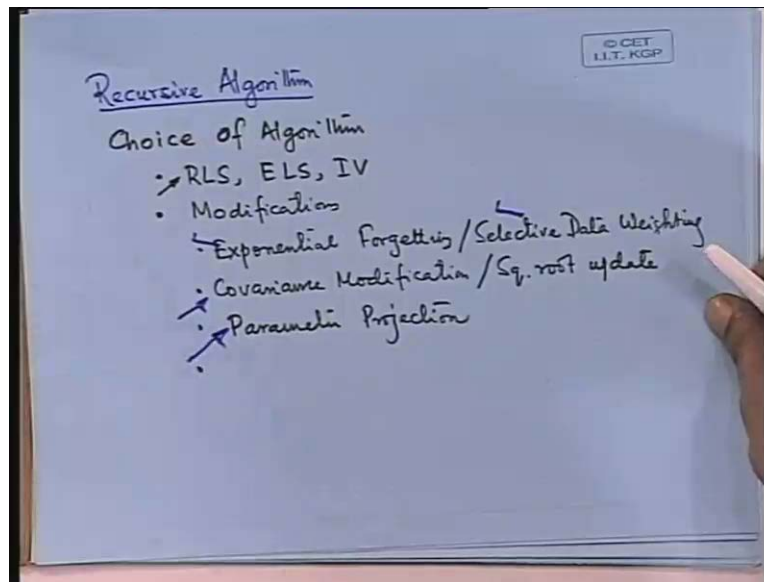 © CET
I.I.T. KGP
Recursive Algorithm
Choice of Algorithm
· RLS, ELS, IV
· Modifications
· Exponential Forgetting / Selective Data Weighting
· Covariance Modification / Sq. root update
· Parameter Projection
·